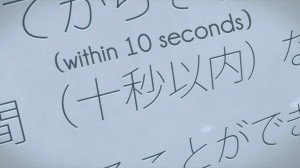 てから
(within 10 seconds)
な
間（十秒以内）
ことができ